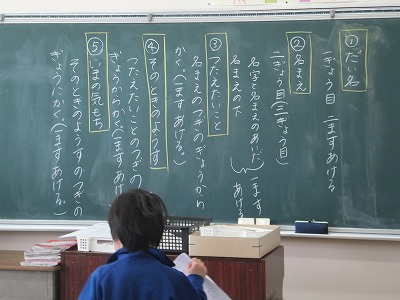 ①だい名
一ぎょう目 二ますあける
②名まえ
二ぎょう目(三ぎょう目)
名字と名まえのあいだ 一ます
名まえの下 あける
③つたえたいこと
名まえのつぎのぎょうから
かく。(一ますあける。)
④そのときのようす
つたえたいことのつぎの
ぎょうからかく(一ますあける
⑤いまの気もち
そのときのようすのつぎの
ぎょうにかく。(一ますあける。)